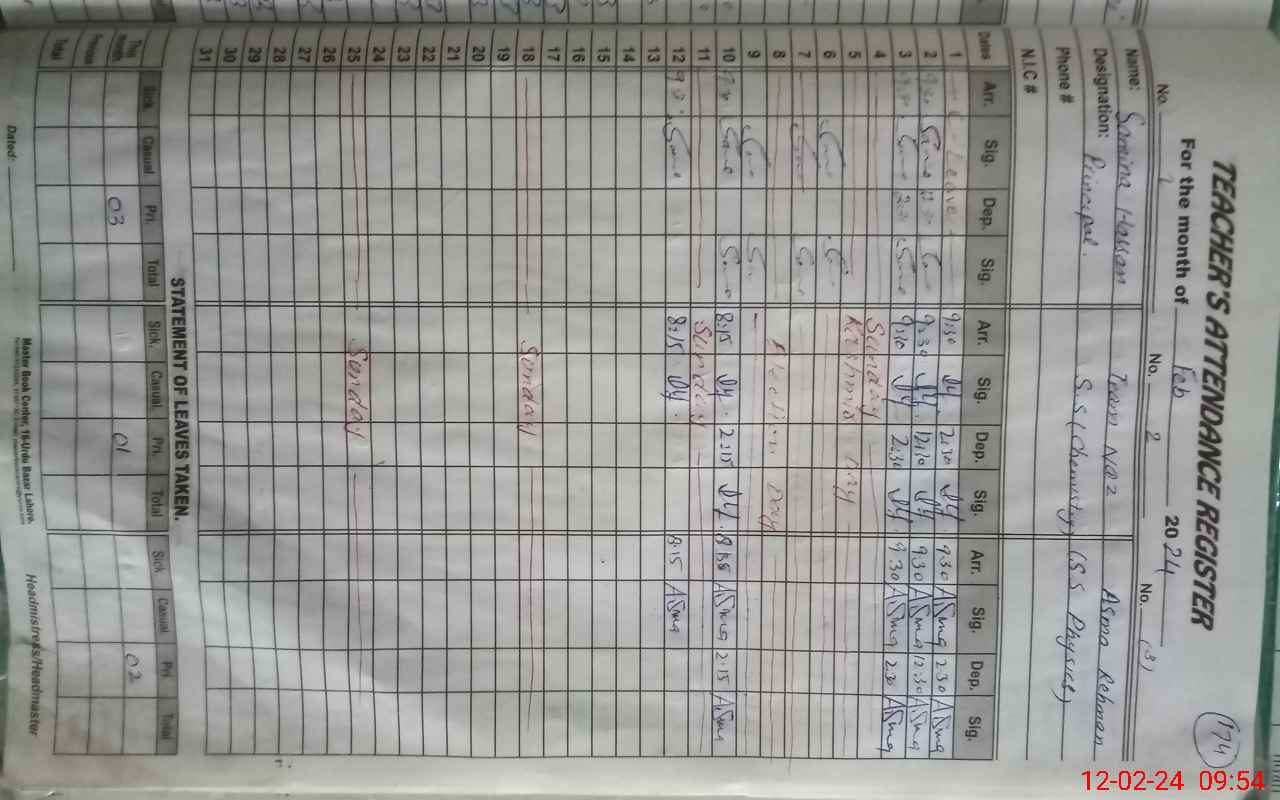 174
TEACHER'S ATTENDANCE REGISTER
For the month of Feb 2024
No. 1 No. 2 No. (3)
Name: Samina Hassan Asma Rehman
Designation: Principal. S.S (Chemistry) (S.S Physics)
Phone #
N.I.C #
Dates Arr. Sig. Dep. Sig. Arr. Sig. Dep. Sig. Arr. Sig. Dep. Sig.
1 Leave 9:30 2:30 9:30 Asma 2:30 Asma
2 9:30 12:30 9:30 12:30 9:30 Asma 12:30 Asma
3 9:30 2:30 9:30 2:30 9:30 Asma 2:30 Asma
4 Sunday
5 Kashmir Day
6
7
8 Election Day
9
10 8:15 2:15 8:15 Asma 2:15 Asma
11 Sunday
12 8:15 8:15 Asma
13
14
15
16
17
18 Sunday
19
20
21
22
23
24
25 Sunday
26
27
28
29
30
31
STATEMENT OF LEAVES TAKEN.
Sick. Casual Pri. Total Sick. Casual. Pri. Total Sick Casual Pri Total
This month 03 01 02
Previous
Total
Dated: Master Book Center, 16-Urdu Bazar Lahore. Headmistress/Headmaster
12-02-24 09:54